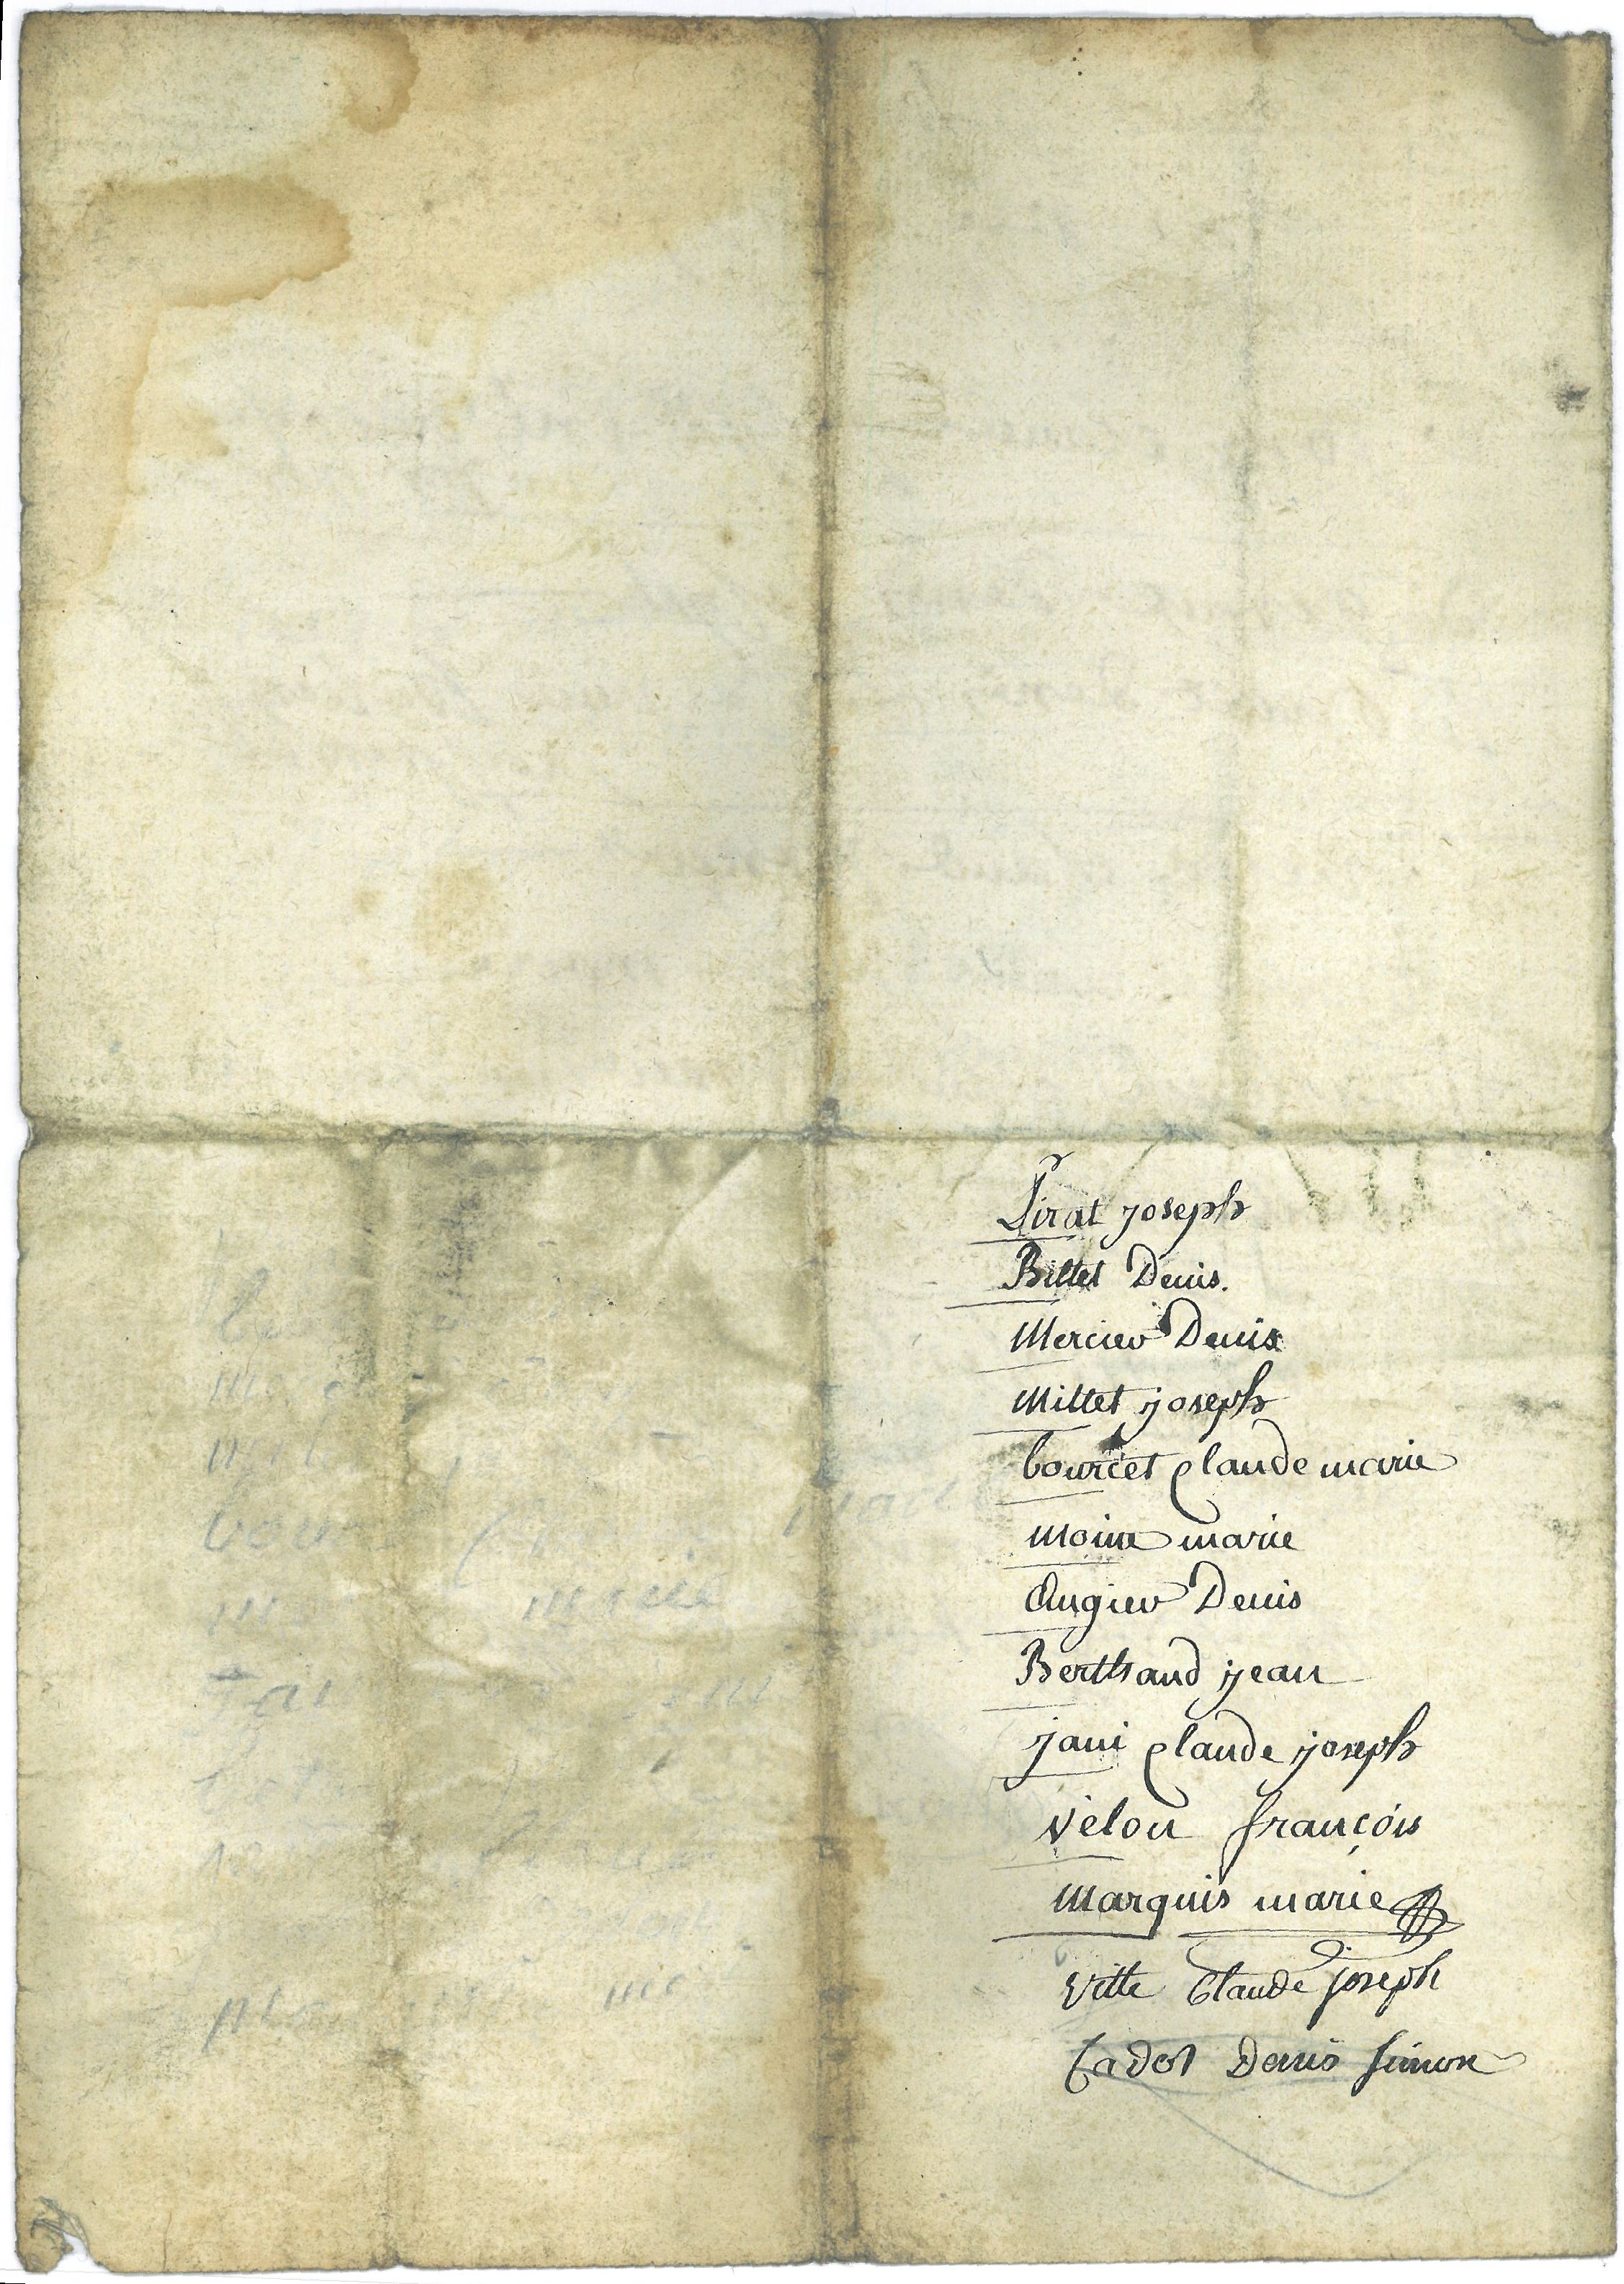 Lirat joseph
Billet Denis.
Mercier Denis
Millet joseph
bourcet Claude marie
moine marie
Augier Denis
Berthaud jean
jani Claude joseph
velon françois
Marquis marie
Vitte Claude joseph
Cadot Denis simon